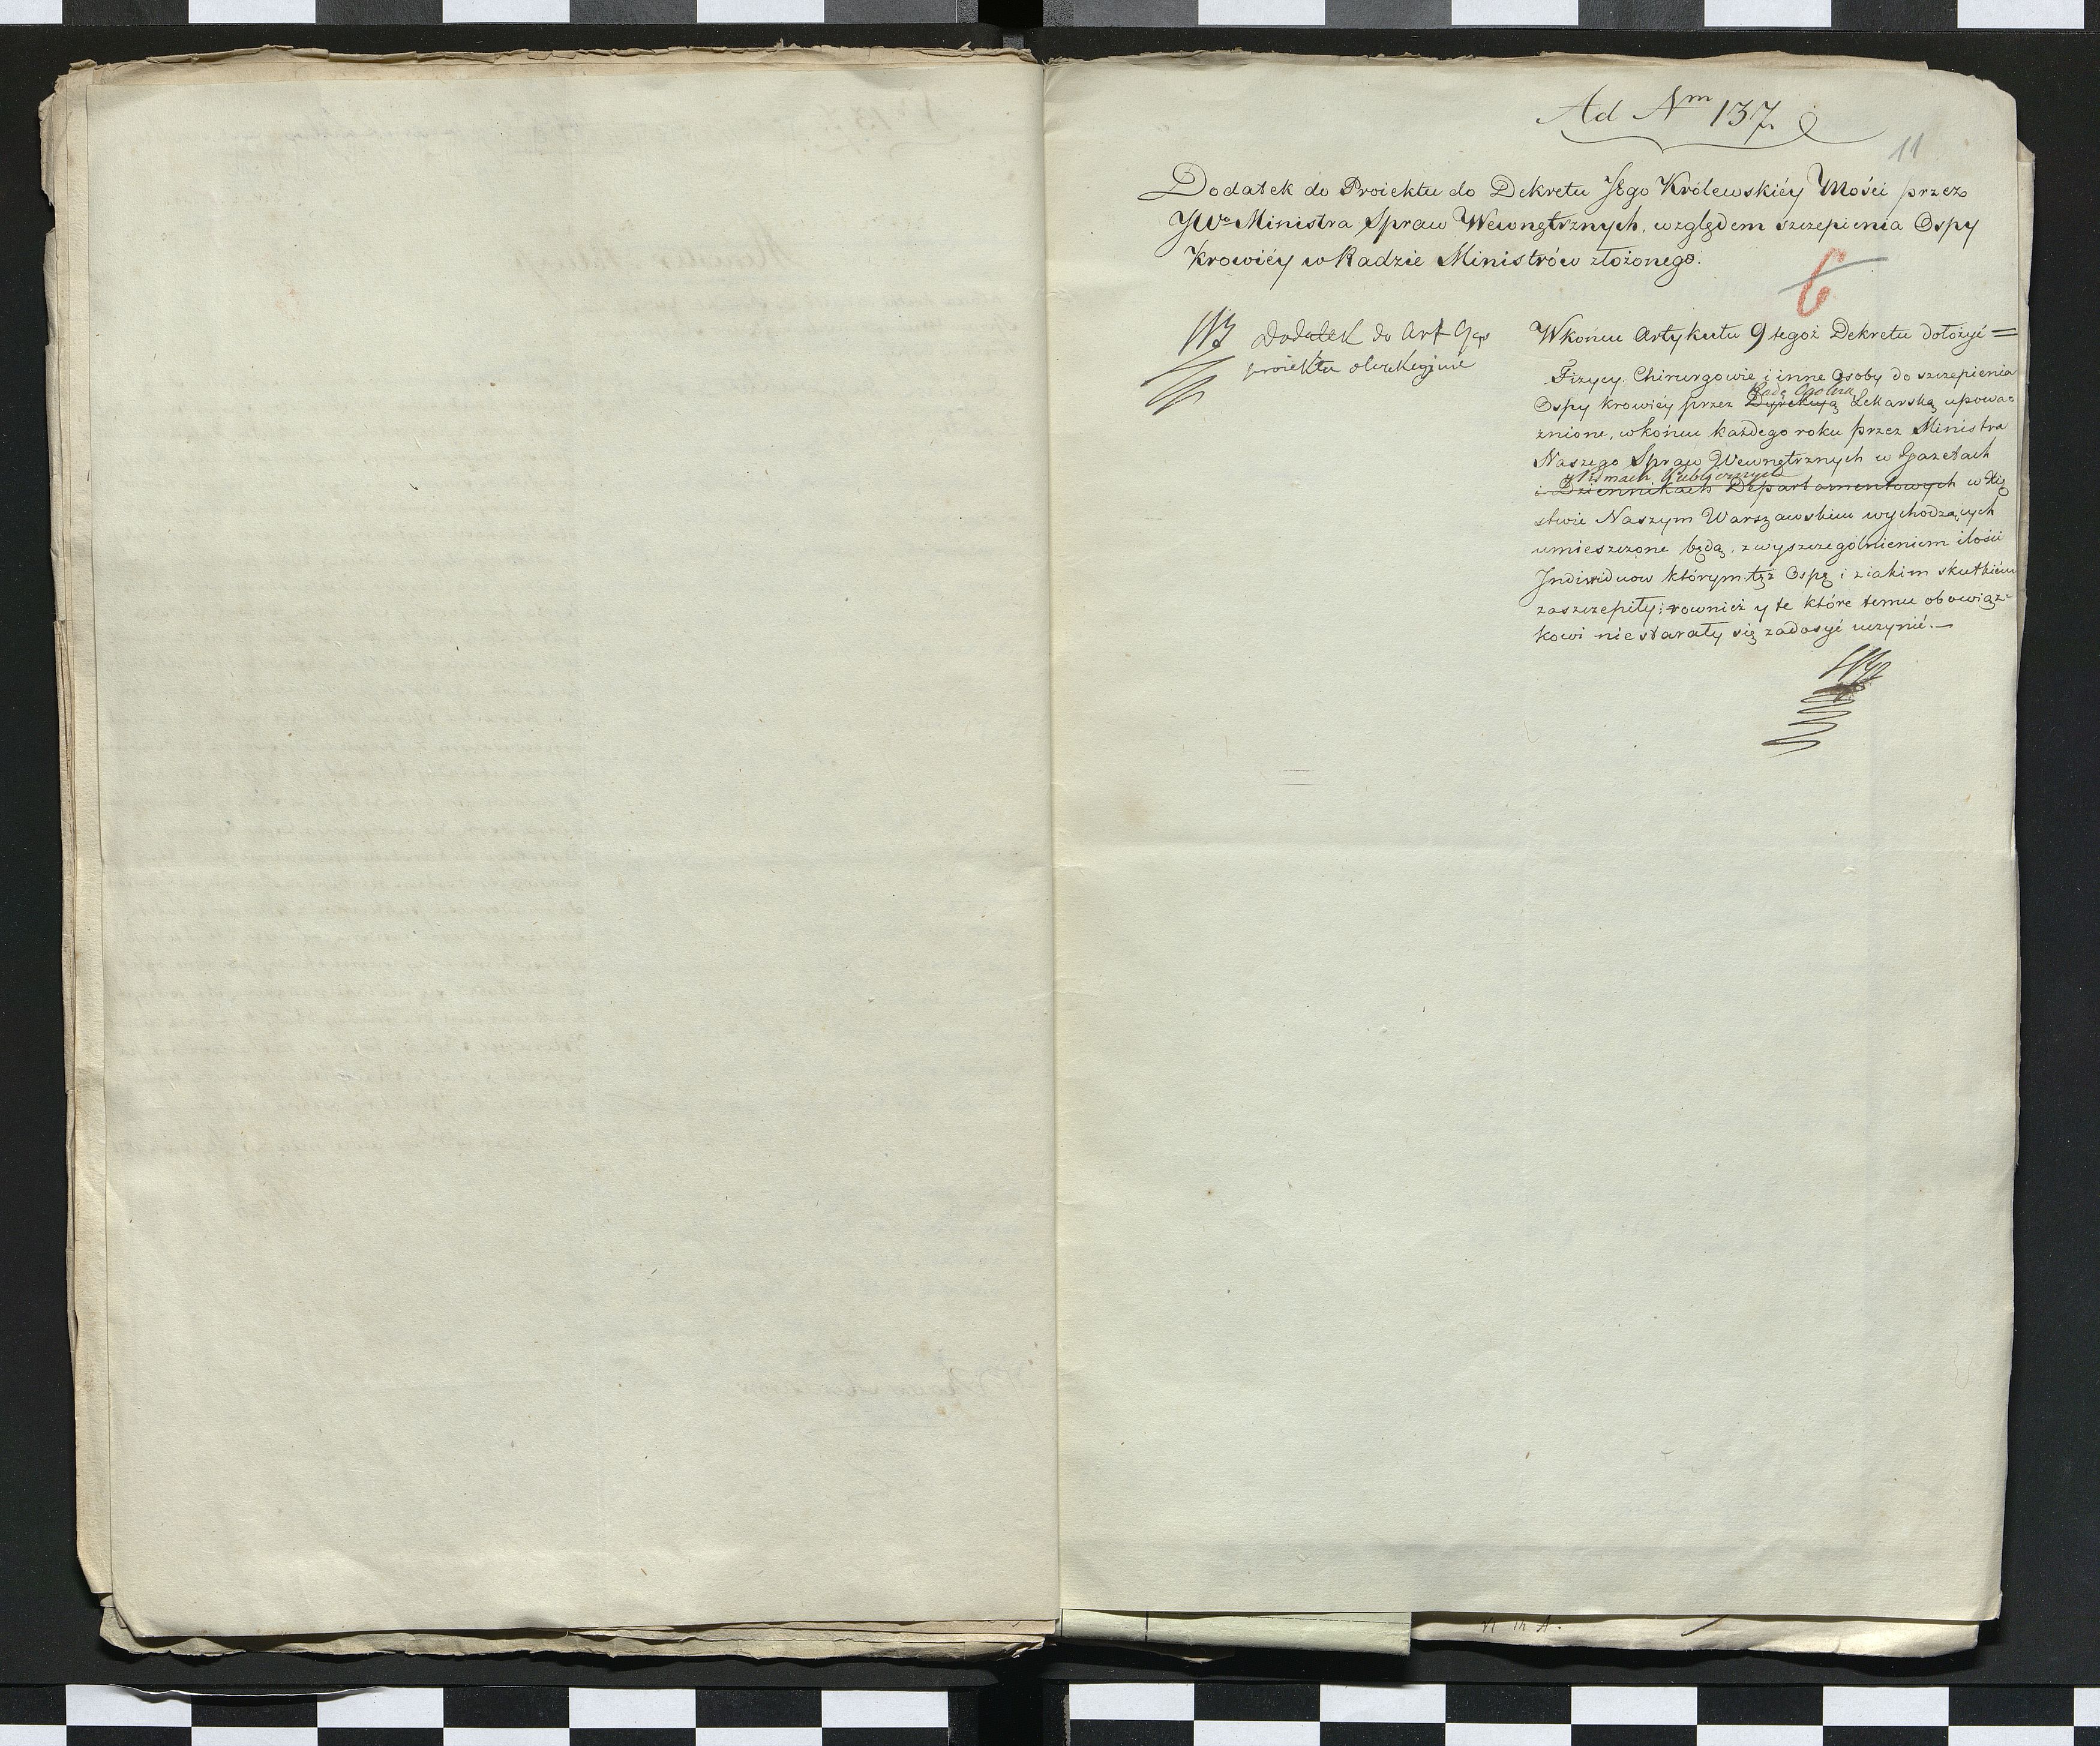 Ad Nm 137.
11
Dodatek do Proiektu do Dekretu Jego Królewskiéy Mości przez
JWo Ministra Spraw Wewnętrznych, względem szczepienia Ospy
Krowiéy w Radzie Ministrów złożonego.
6
Dodatek do Art 9go
proiektu
W końcu Artykułu 9 tegoż Dekretu dołożyć =
Fizycy. Chirurgowie i inne Osoby do szczepienia
Radę Ogolną
Ospy krowiéy przez Dyrekcyą Lekarską upowa=
żnione, w końcu każdego roku przez Ministra
Naszego Spraw Wewnętrznych w Gazetach
y Pismach Publicznych
i Dziennikach Departamentowych w Xię
stwie Naszym Warszawskim wychodzących
umieszczone będą, z wyszczególnieniem ilości
Individuow którym tęż Ospę i z iakim skutkiem
zaszczepiły; rownież y te które temu obowiąz=
kowi nie starały się zadosyć uczynić.—